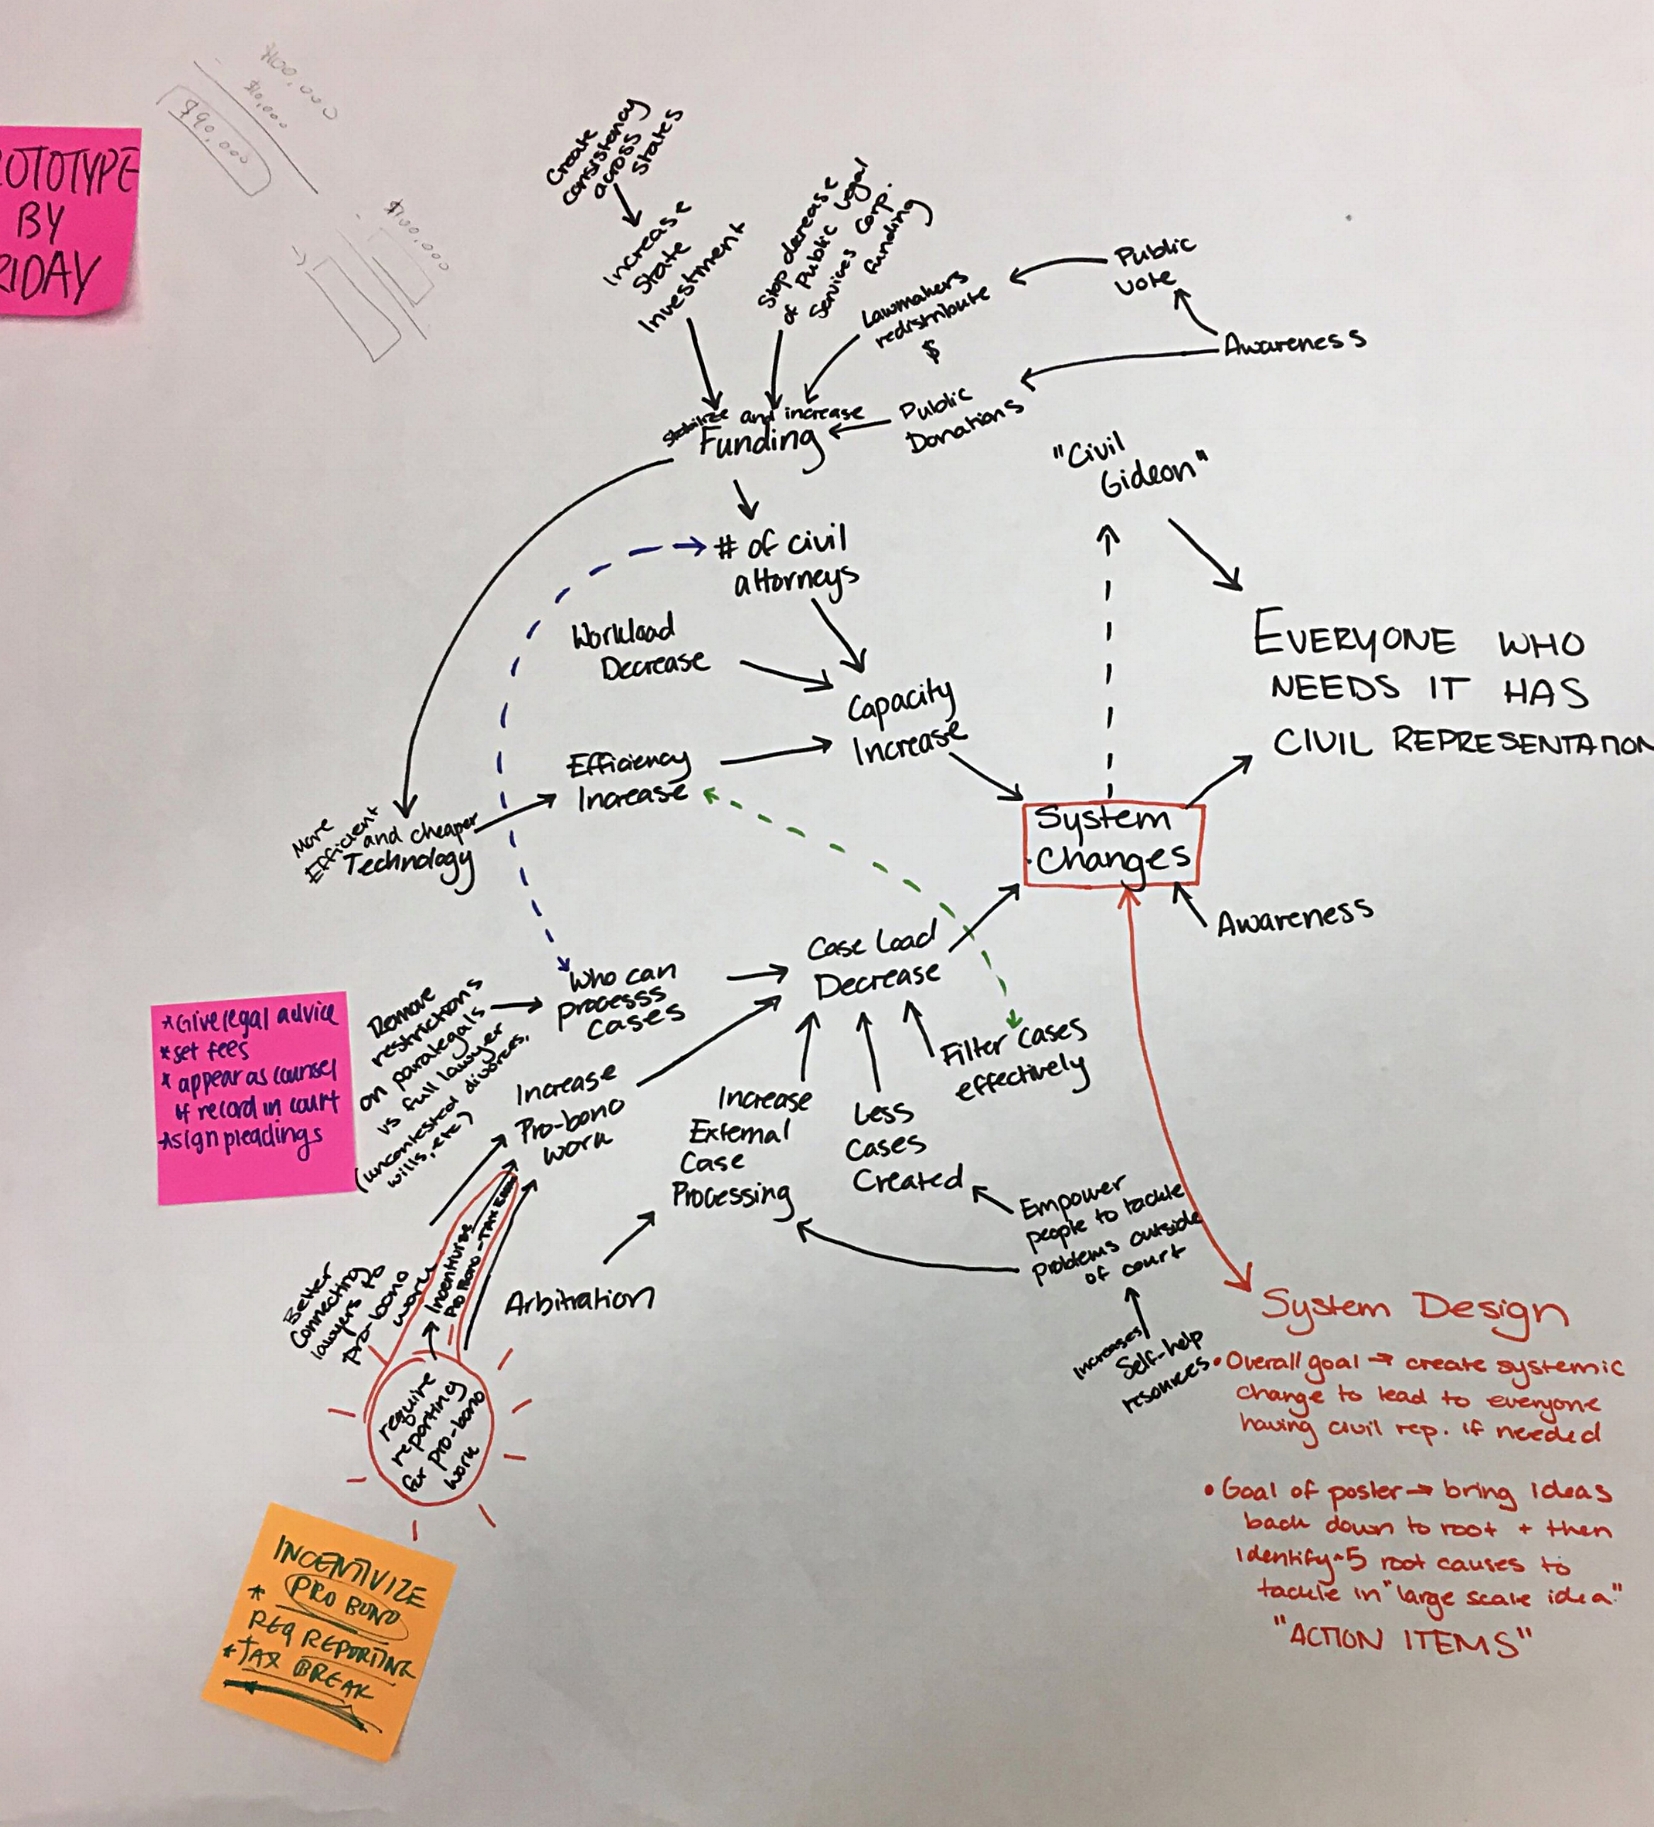 $100,000
$10,000
$90,000
$100,000
OTOTYPE
BY
RIDAY
Create
consistency
across
states
Increase
State
Investment
Stop decrease
of Public Legal
Services Corp.
funding
Lawmakers
redistribute
$
Public
vote
Awareness
Public
Donations
stabilize and increase
Funding
"Civil
Gideon"
# of civil
attorneys
Workload
Decrease
Capacity
Increase
EVERYONE WHO
NEEDS IT HAS
CIVIL REPRESENTATION
Efficiency
Increase
More
Efficient and cheaper
Technology
System
Changes
Awareness
Case Load
Decrease
Who can
processs
cases
Remove
restrictions
on paralegals
vs full lawyer
(uncontested divorces,
wills, etc)
*Give legal advice
*set fees
* appear as counsel
of record in court
*sign pleadings
Filter Cases
effectively
Increase
Pro-bono
work
Increase
External
Case
Processing
Less
Cases
Created
Empower
people to tackle
problems outside
of court
Increases
Self-help
resources
Arbitration
Better
connecting
lawyers to
pro-bono
work
Incentivize
Pro Bono - TAX
require
reporting
for pro-bono
work
INCENTIVIZE
* PRO BONO
REQ REPORTING
* TAX BREAK
System Design
• Overall goal → create systemic
change to lead to everyone
having civil rep. if needed
• Goal of poster → bring ideas
back down to root + then
identify ~5 root causes to
tackle in "large scale idea"
"ACTION ITEMS"